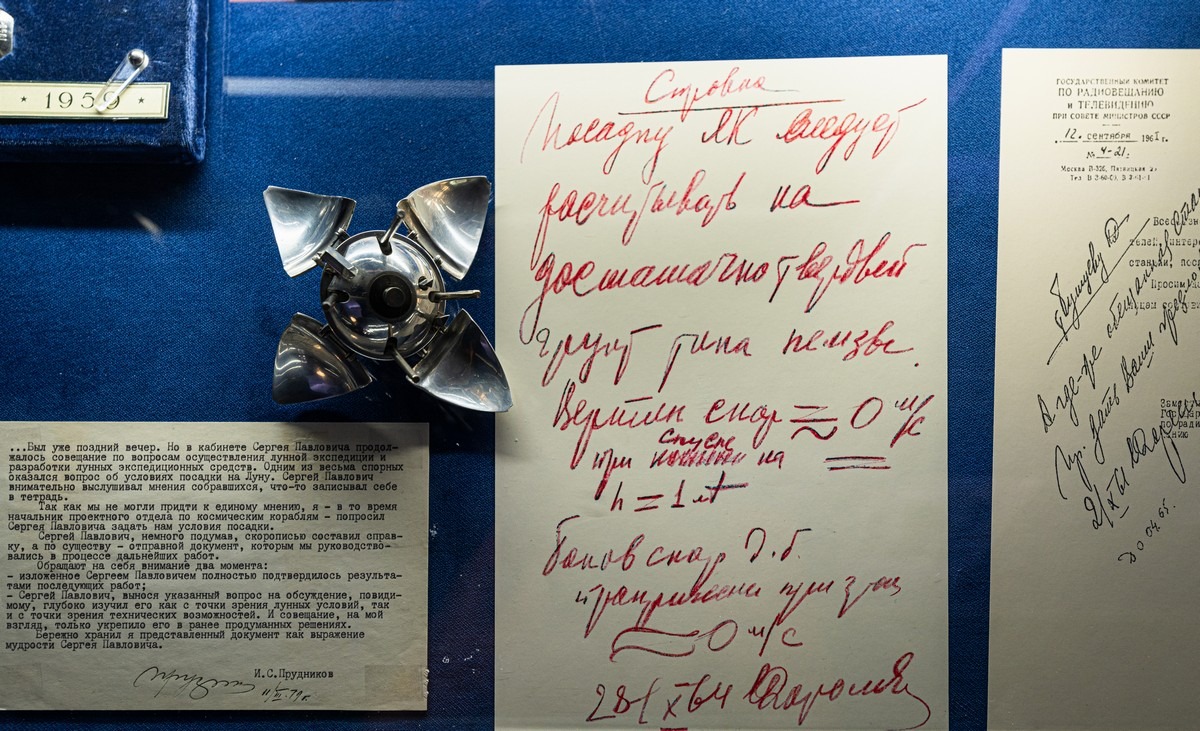 ★ 1959 ★
...Был уже поздний вечер. Но в кабинете Сергея Павловича продол-
жалось совещание по вопросам осуществления лунной экспедиции и
разработки лунных экспедиционных средств. Одним из весьма спорных
оказался вопрос об условиях посадки на Луну. Сергей Павлович
внимательно выслушивал мнения собравшихся, что-то записывал себе
в тетрадь.
Так как мы не могли придти к единому мнению, я - в то время
начальник проектного отдела по космическим кораблям - попросил
Сергея Павловича задать нам условия посадки.
Сергей Павлович, немного подумав, скорописью составил справ-
ку, а по существу - отправной документ, которым мы руководство-
вались в процессе дальнейших работ.
Обращают на себя внимание два момента:
- изложенное Сергеем Павловичем полностью подтвердилось результа-
тами последующих работ;
- Сергей Павлович, вынося указанный вопрос на обсуждение, повиди-
мому, глубоко изучил его как с точки зрения лунных условий, так
и с точки зрения технических возможностей. И совещание, на мой
взгляд, только укрепило его в ранее продуманных решениях.
Бережно хранил я представленный документ как выражение
мудрости Сергея Павловича.
И.С.Прудников
Справка
Посадку ЛК следует
расчитывать на
достаточно твердый
грунт типа пемзы.
Вертик скор ≈ 0 м/с
при спуске на
h = 1 м
Боков скор д.б.
≈ 0 м/с
28/X 64 Королев
ГОСУДАРСТВЕННЫЙ КОМИТЕТ
ПО РАДИОВЕЩАНИЮ
и ТЕЛЕВИДЕНИЮ
ПРИ СОВЕТЕ МИНИСТРОВ СССР
12. сентября 1961 г.
№ 4-21
Москва
Тел.
станции, пос
Просим